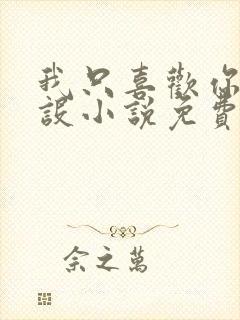 我只喜歡你
設小說免費
余之萬